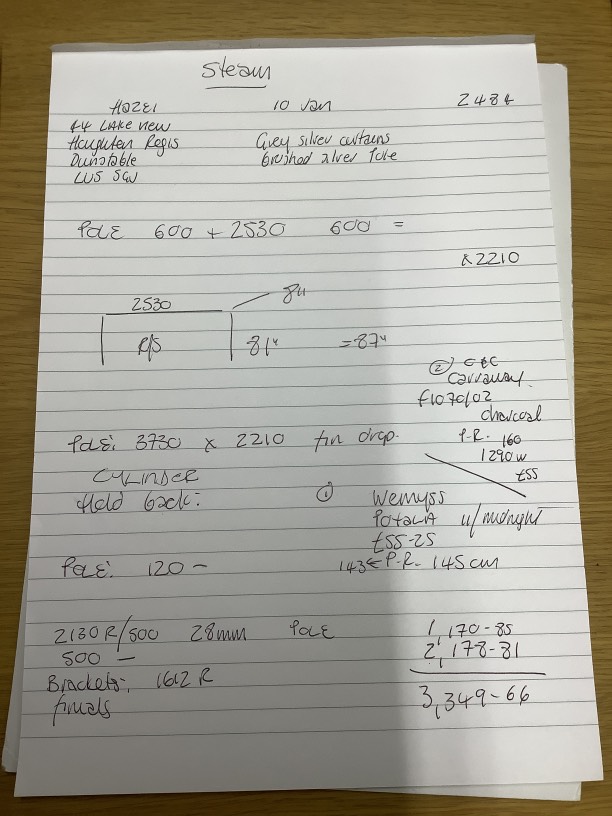 Steam
HAZEl 10 Jan 2484
44 LAKE new
Haughten Regis Grey silver curtains
Dunstable brushed silver Pole
LU5 5GW
PolE 600 + 2530 600 =
x2210
2530 8"
R/S 81" =87"
② C&C
Carraway
f1070/02
charcoal
PolE: 3730 x 2210 fin drop. P.R. 160
1290w
CYLINDER £55
Hold back: ① Wemyss
PotalA w/midnight
£55-25
PolE: 120 — 143 P.R. 145cm
2130 R/500 28mm PolE 1,170-85
500 — 2,178-81
Brackets: 1612 R
finials 3,349-66